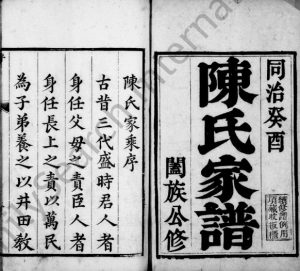 同治癸酉
陳氏家譜
闔族公修
陳氏家乘序
古昔三代盛時君人者
身任父母之責臣人者
身任長上之責以萬民
為子弟養之以井田教